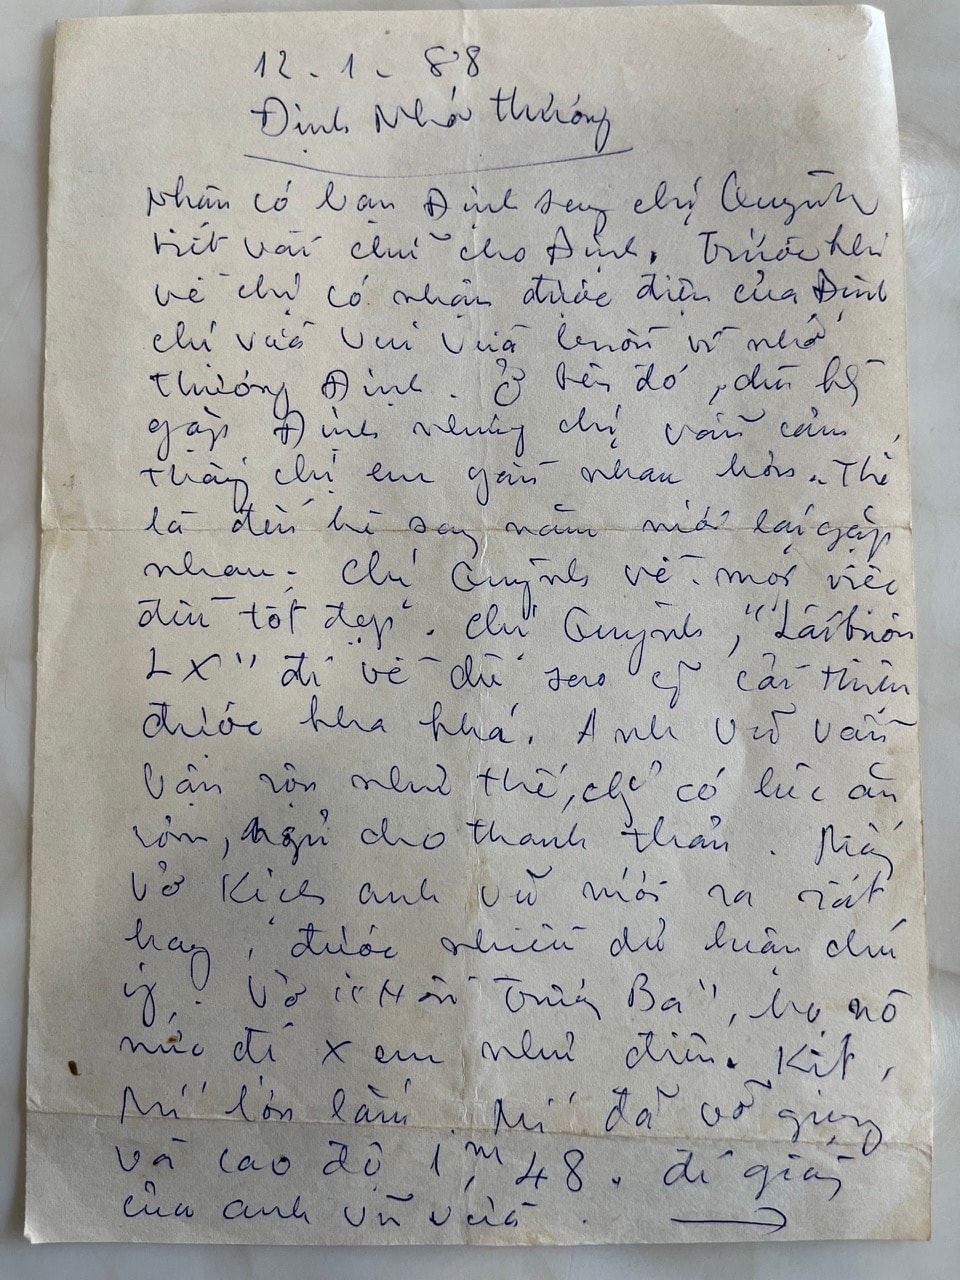 12.1.88
Định Nhớ thương
Nhân có bạn Định sang chị Quỳnh
viết vài chữ cho Định. Trước khi
về chị có nhận được điện của Định
chị vừa vui vừa buồn vì nhớ
thương Định. Ở bên đó, dù
gặp Định nhưng chị vẫn cảm
thấy chị em gần nhau hơn. Thế
là đến hè sang năm mới lại gặp
nhau. Chị Quỳnh về mọi việc
đều tốt đẹp. Chị Quỳnh, "Lái buôn
LX" đi về dù sao cũng cải thiện
được kha khá. Anh Vũ vẫn
bận rộn như thế, chả có lúc ăn
, ngủ cho thanh thản. Mấy
vở kịch anh Vũ mới ra rất
hay, được nhiều dư luận chú
ý. Vở "Hồn Trương Ba", họ nô
nức đi xem như điên. Kít,
Mí lớn lắm. Mí đã vỡ giọng
và cao độ 1m,48. đi giầy
của anh Vũ vừa. →